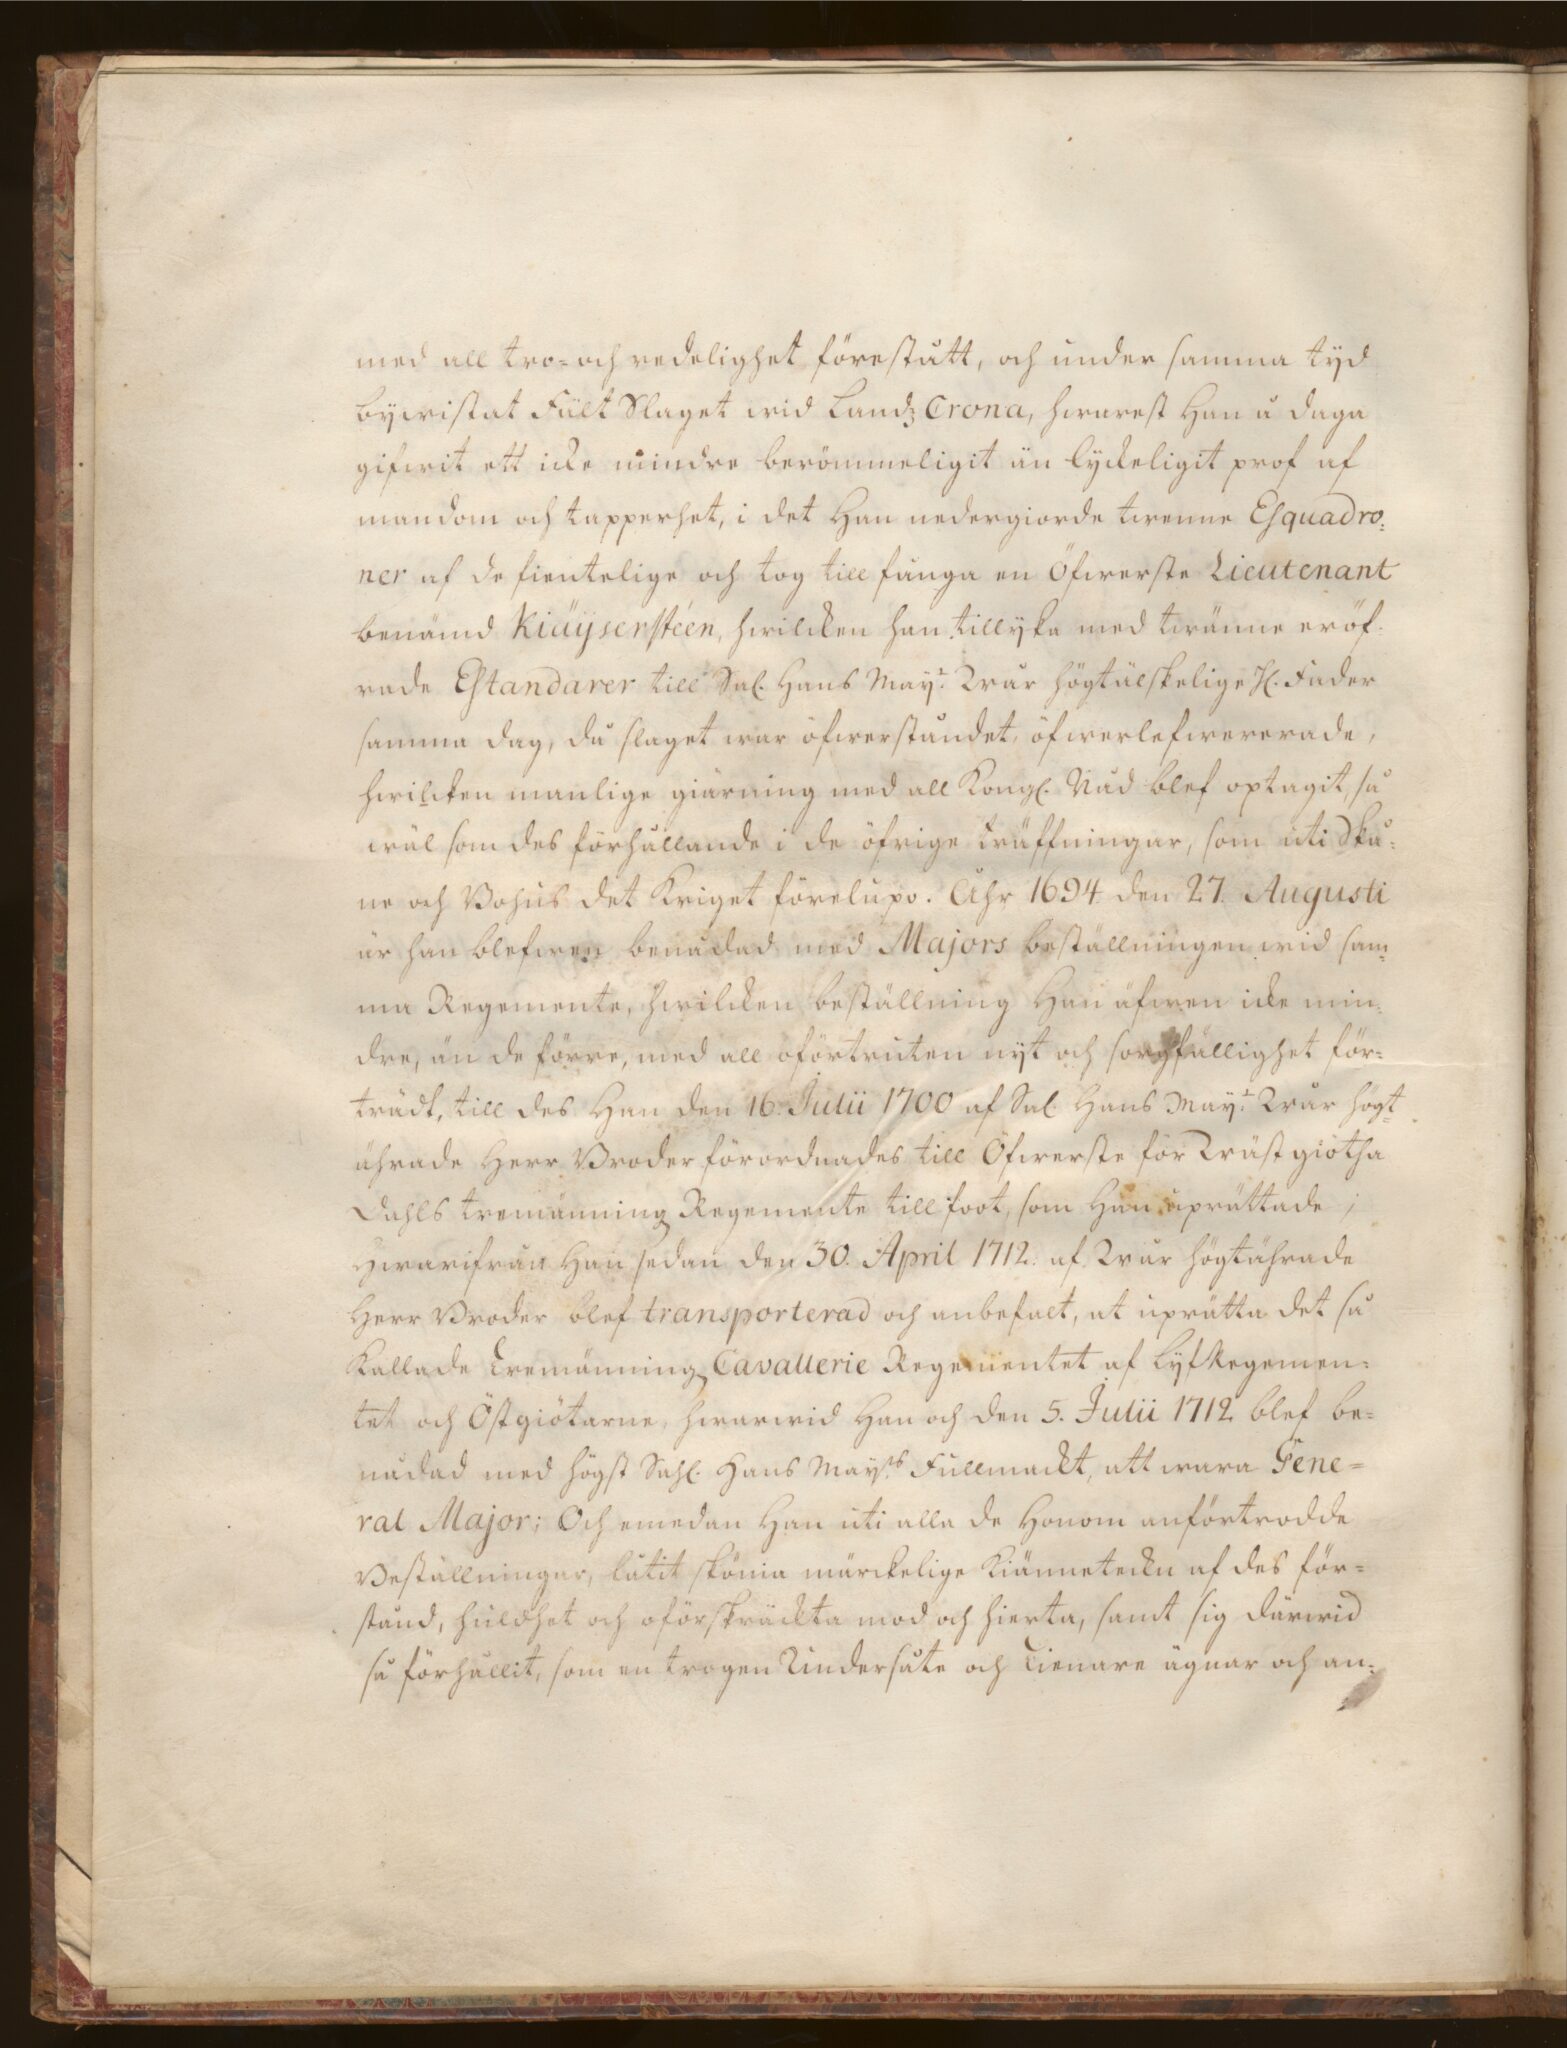 med all tro= och redelighet förestått, och under samma tyd
bywistat Fält Slaget wid Landz Crona, hwarest Han å daga
gifwit ett icke mindre berömmeligit än lyckeligit prof af
mandom och tapperhet, i det Han nedergiorde twenne Esquadro=
ner af de fientelige och tog till fånga en Öfwerste Lieutenant
benämd Kiäÿsersteen, hwilcken han tillyka med twänne eröf=
rade Estandarer till Sal. Hans Mayt. Wår högtälskelige H. Fader
samma dag, då slaget war öfwerståndet, öfwerlefwererade,
hwilcken manlige giärning med all Kongl. Nåd blef optagit, så
wäl som des förhållande i de öfrige träffningar, som uti Skå=
ne och Bohus det Kriget förelupo. Åhr 1694 den 27. Augusti
är han blefwen benådad med Majors beställningen wid sam=
ma Regemente, hwilcken beställning Han äfwen icke min=
dre, än de förre, med all oförtruten nyt och sorgfällighet för=
trädt, till des Han den 16. Julii 1700 af Sal. Hans Mayt. Wår högt=
ährade Herr Broder förordnades till Öfwerste för Wästgiötha
Dahls tremänning Regemente till foot, som Han uprättade;
Hwarifrån Han sedan den 30. April 1712. af Wår högtährade
Herr Broder blef transporterad och anbefalt, at uprätta det så
kallade Tremänning Cavallerie Regementet af LyfRegemen=
tet och Östgiötarne, hwarwid Han och den 5. Julii 1712 blef be=
nådad med högst Sahl. Hans Mayts. Fullmackt, att wara Gene=
ral Major; Och emedan Han uti alla de Honom anförtrodde
Beställningar, låtit skönia märckelige Kiänneteckn af des för=
stånd, huldhet och oförskräckta mod och hierta, samt sig därwid
så förhållit, som en trogen Undersåte och Tienare ägnar och an=